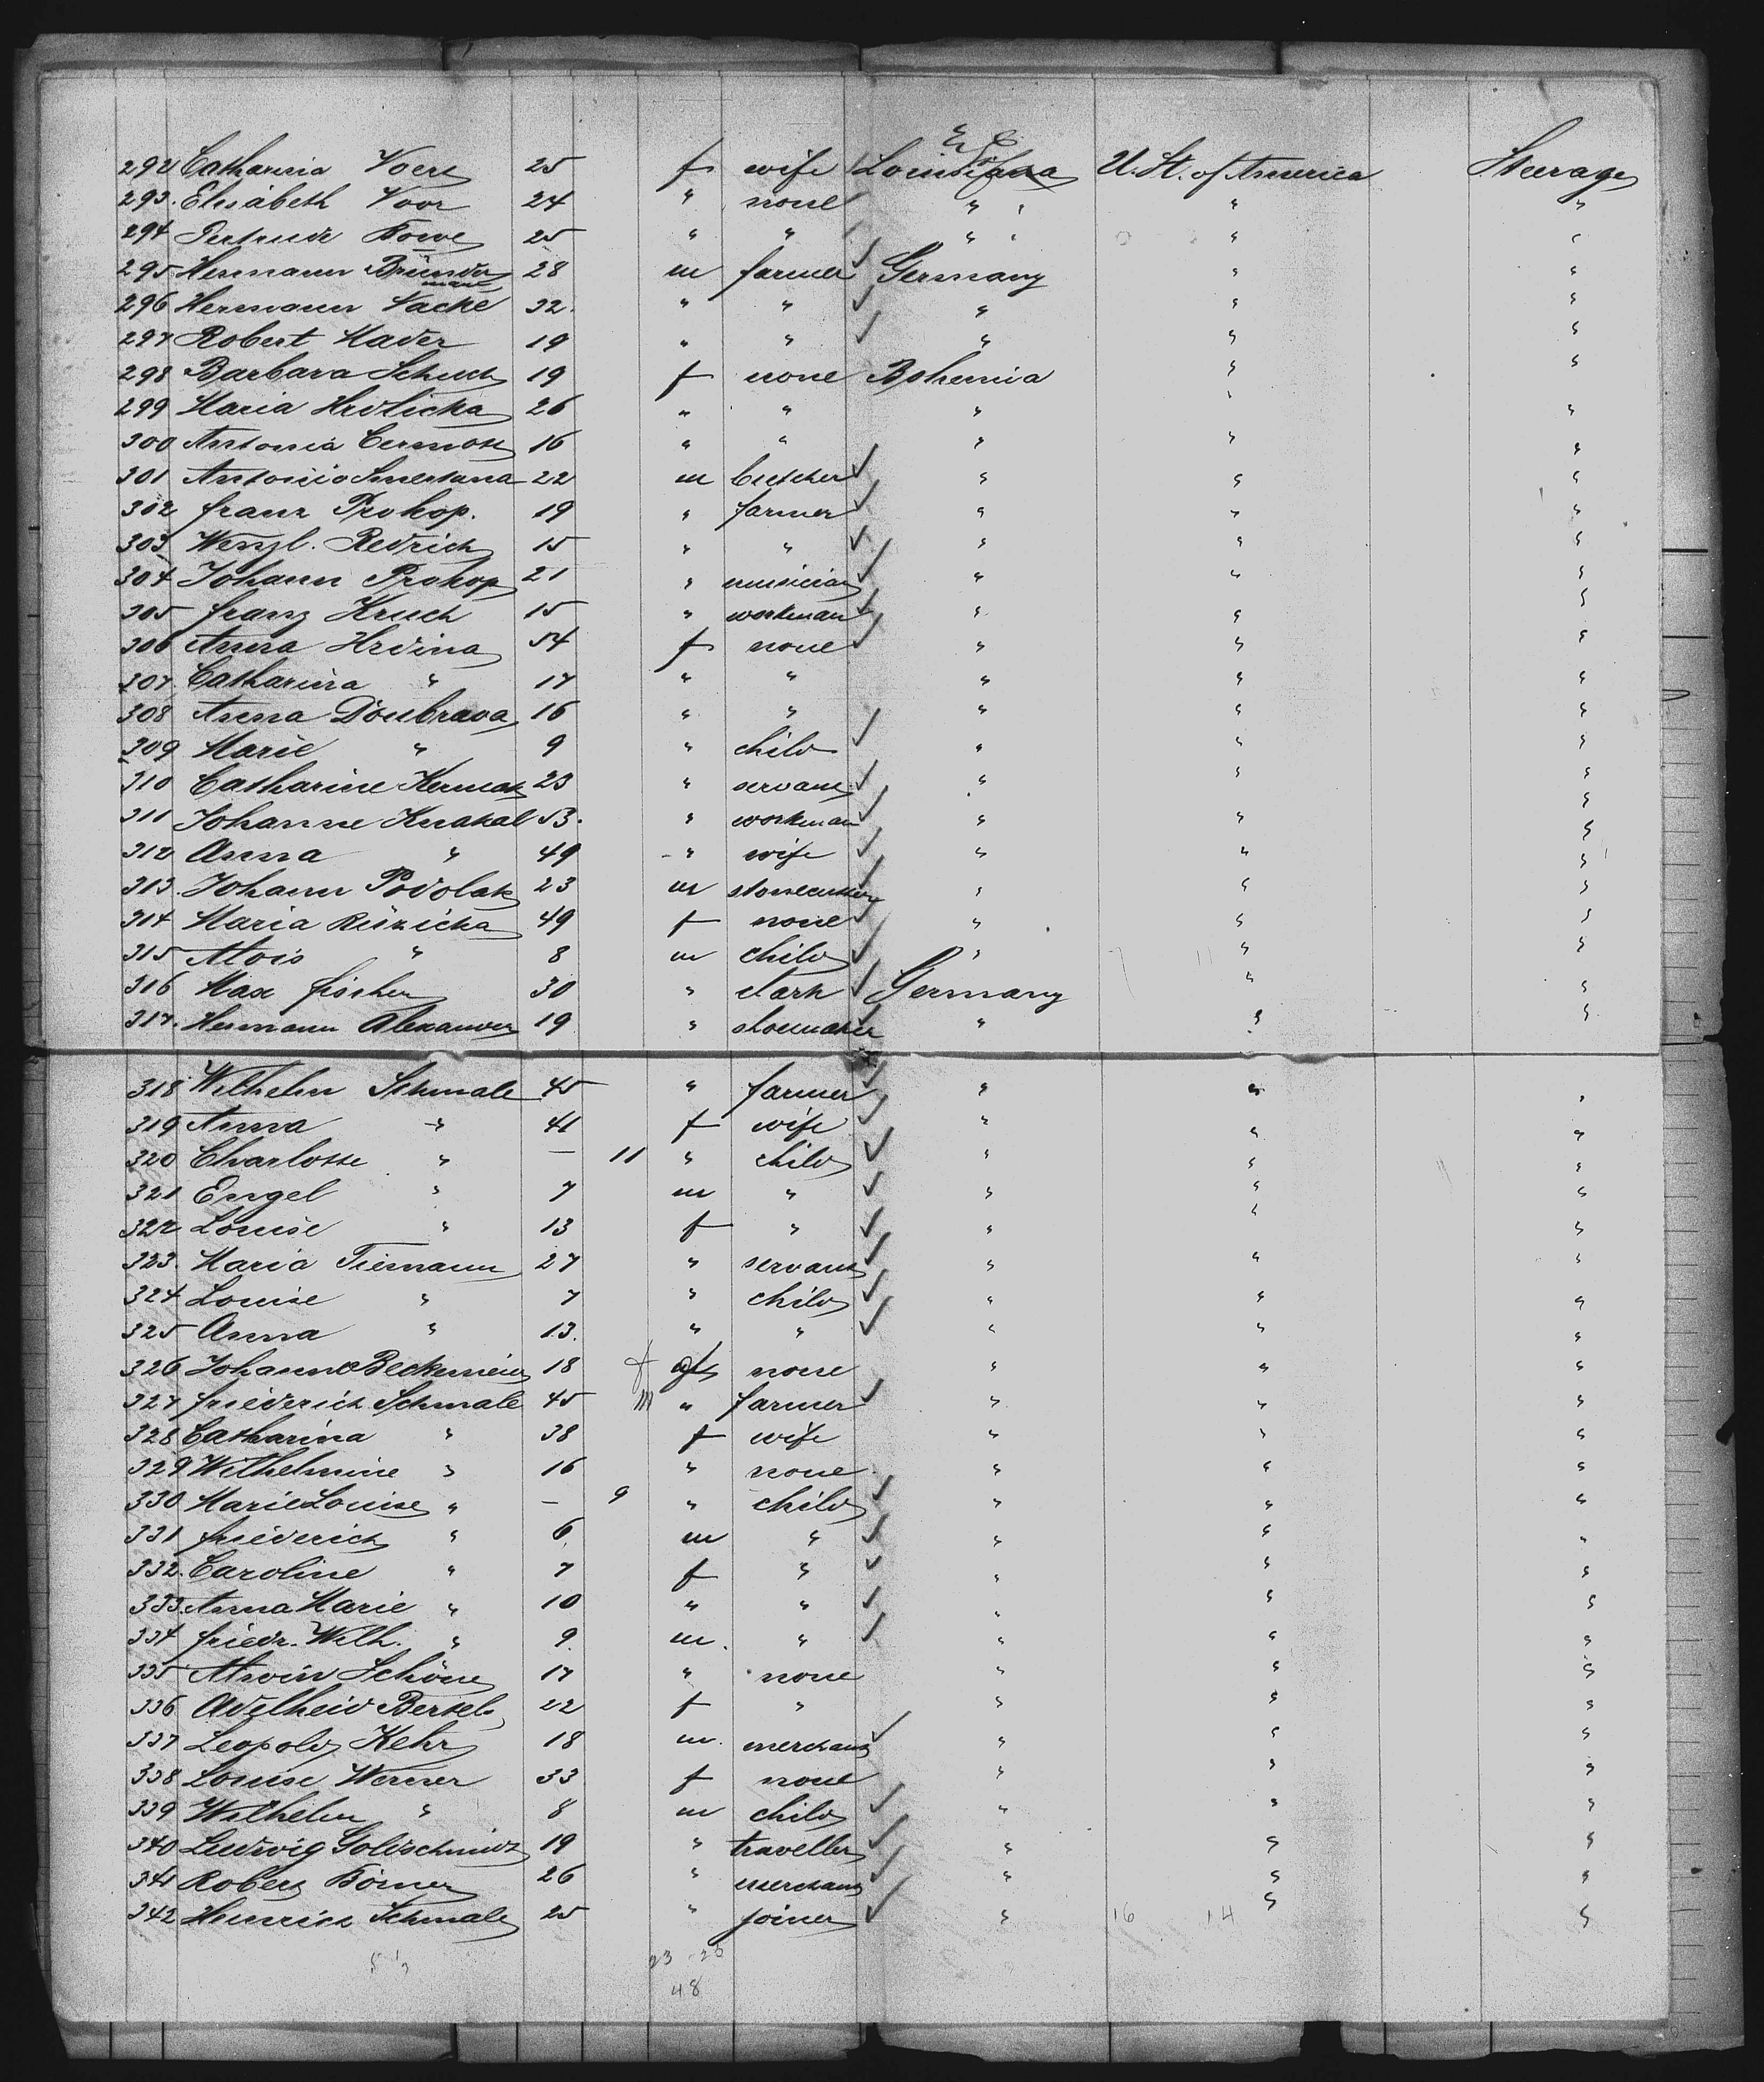 292 Catharina Voers 25 f wife Louisiana U. St. of America Steerage
293. Elisabeth Voor 24 " none " " "
294 Gertrude Kowe 25 " " " " "
295 Hermann Bründer 28 m farmer Germany " "
mann
296 Hermann Vacke 32. " " " " "
297 Robert Mader 19 " " " " "
298 Barbara Schuch 19 f none Bohemia " "
299 Maria Hrdlicka 26 " " " " "
300 Antonia Cermak 16 " " " " "
301 Antonio Smertana 22 m butcher " " "
302 Franz Prokop. 19 " farmer " " "
303 Wenzl. Redrich 15 " " " " "
304 Johann Prokop 21 " musician " " "
305 Franz Kruch 15 " workman " " "
306 Anna Hrdina 54 f none " " "
307 Catharina " 17 " " " " "
308 Anna Doubrava 16 " " " " "
309 Marie " 9 " child " " "
310 Catharine Kermak 23 " servant " " "
311 Johanne Knakal 53. " workman " " "
312 Anna " 49 " wife " " "
313. Johann Podolak 23 m stonecutter " " "
314 Maria Růzicka 49 f none " " "
315 Alois " 8 m child " " "
316 Max Fischer 30 " clark Germany " "
317. Hermann Alexander 19 " shoemaker " " "
318 Wilhelm Schmale 45 " farmer " " "
319 Anna " 41 f wife " " "
320 Charlotte " — 11 " child " " "
321 Engel " 7 m " " " "
322 Louise " 13 f " " " "
323. Maria Tiemann 27 " servant " " "
324 Louise " 7 " child " " "
325 Anna " 13. " " " " "
326 Johanne Beckmeier 18 f none " " "
327 Friederich Schmale 45 m " farmer " " "
328 Catharina " 38 f wife " " "
329 Wilhelmine " 16 " none " " "
330 Marie Louise " — 9 " child " " "
331 Friederich " 6 m " " " "
332. Caroline " 7 f " " " "
333. Anna Marie " 10 " " " " "
334 Friedr. Wilh. " 9. m. " " " "
335 Alwin Schöne 17 " none " " "
336 Adelheid Bertels 22 f " " " "
337 Leopold Kehr 18 m. merchant " " "
338 Louise Werner 33 f none " " "
339 Wilhelm " 8 m child " " "
340 Ludwig Goldschmidt 19 " traveller " " "
341 Robert Börner 26 " merchant " " "
342 Heinrich Schmale 25 " joiner " 16 14 " "
23 - 25
48